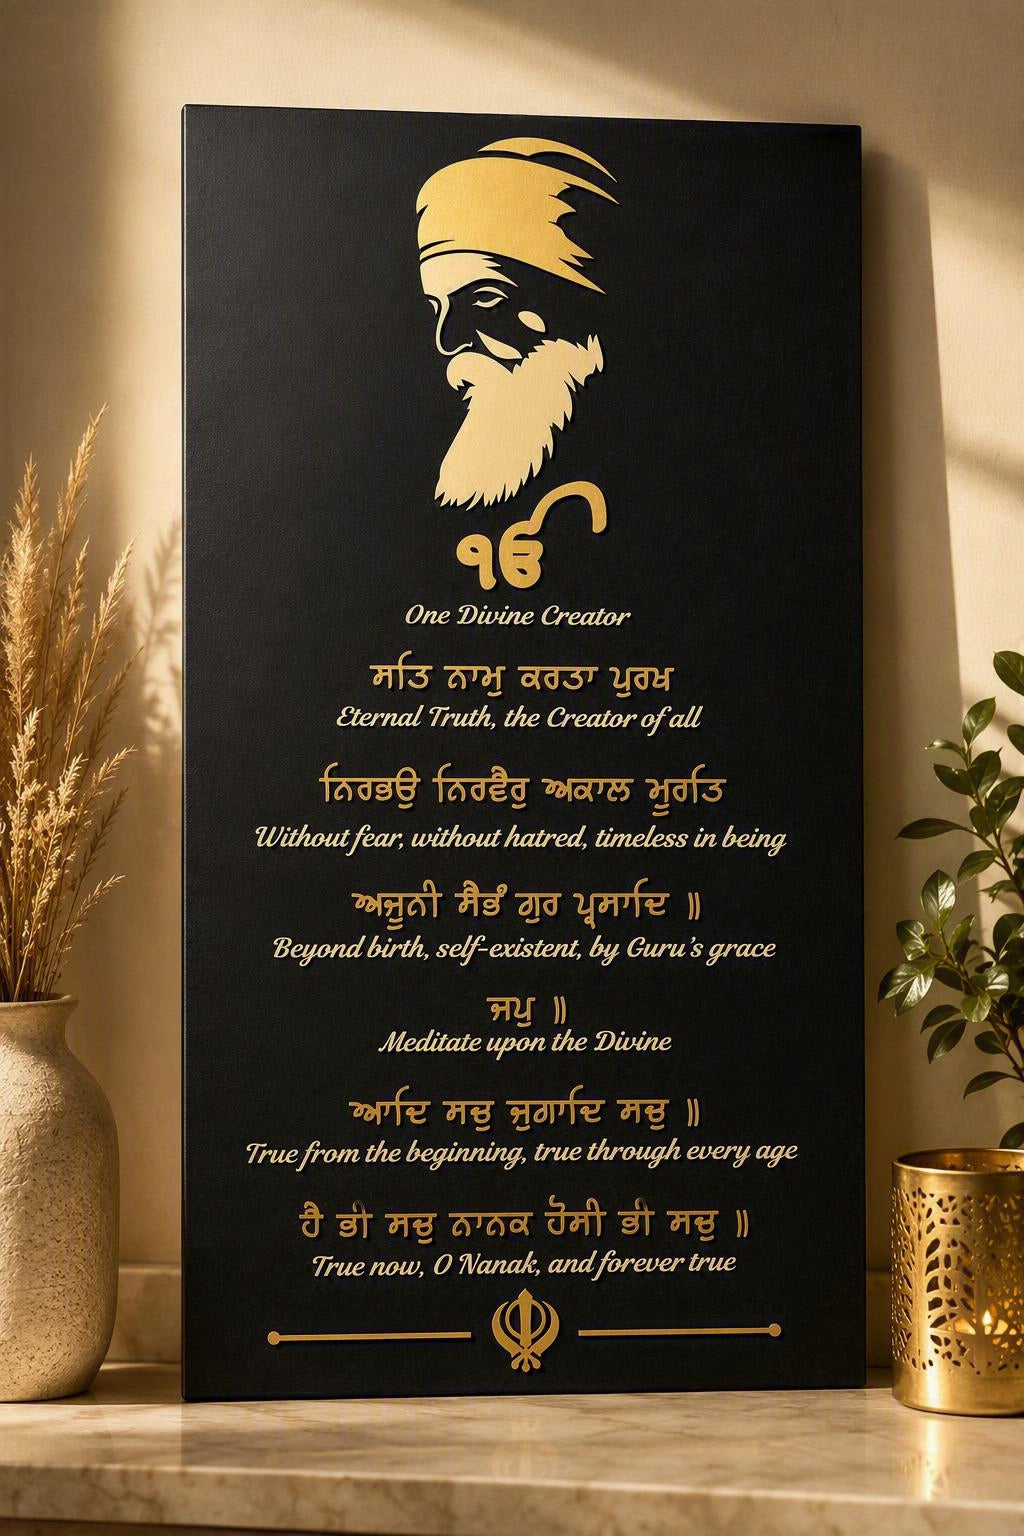 ੴ
One Divine Creator
ਸਤਿ ਨਾਮੁ ਕਰਤਾ ਪੁਰਖ
Eternal Truth, the Creator of all
ਨਿਰਭਉ ਨਿਰਵੈਰੁ ਅਕਾਲ ਮੂਰਤਿ
Without fear, without hatred, timeless in being
ਅਜੂਨੀ ਸੈਭੰ ਗੁਰ ਪ੍ਰਸਾਦਿ ॥
Beyond birth, self-existent, by Guru's grace
ਜਪੁ ॥
Meditate upon the Divine
ਆਦਿ ਸਚੁ ਜੁਗਾਦਿ ਸਚੁ ॥
True from the beginning, true through every age
ਹੈ ਭੀ ਸਚੁ ਨਾਨਕ ਹੋਸੀ ਭੀ ਸਚੁ ॥
True now, O Nanak, and forever true